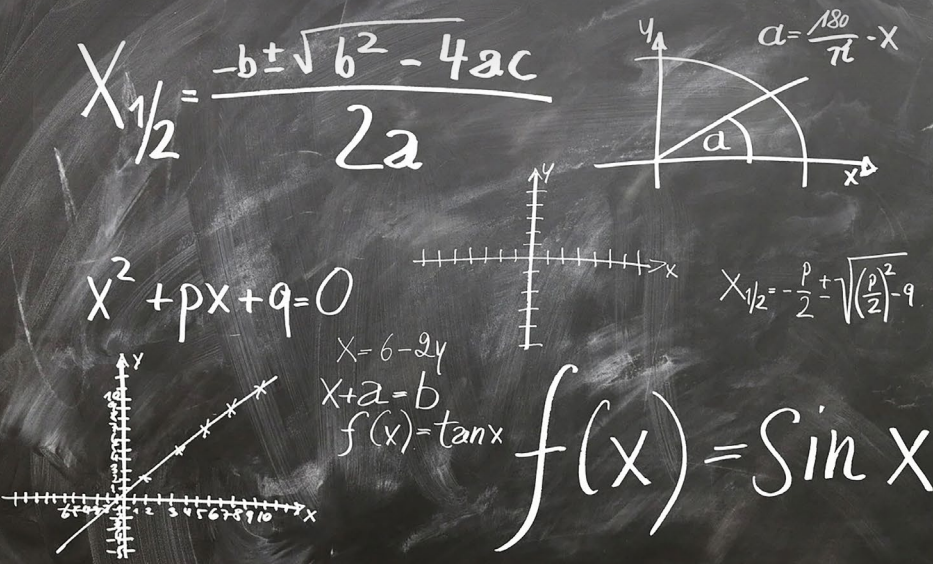 X1/2 = -b ± √b² - 4ac / 2a
y
a = 180/π - x
a
x
y
x
x² + px + q = 0
X1/2 = -p/2 ± √(p/2)² - q
x = 6 - 2y
x + a = b
f(x) = tan x
f(x) = Sin x
y
1 2 3 4 5 6 7 8 9 10
x